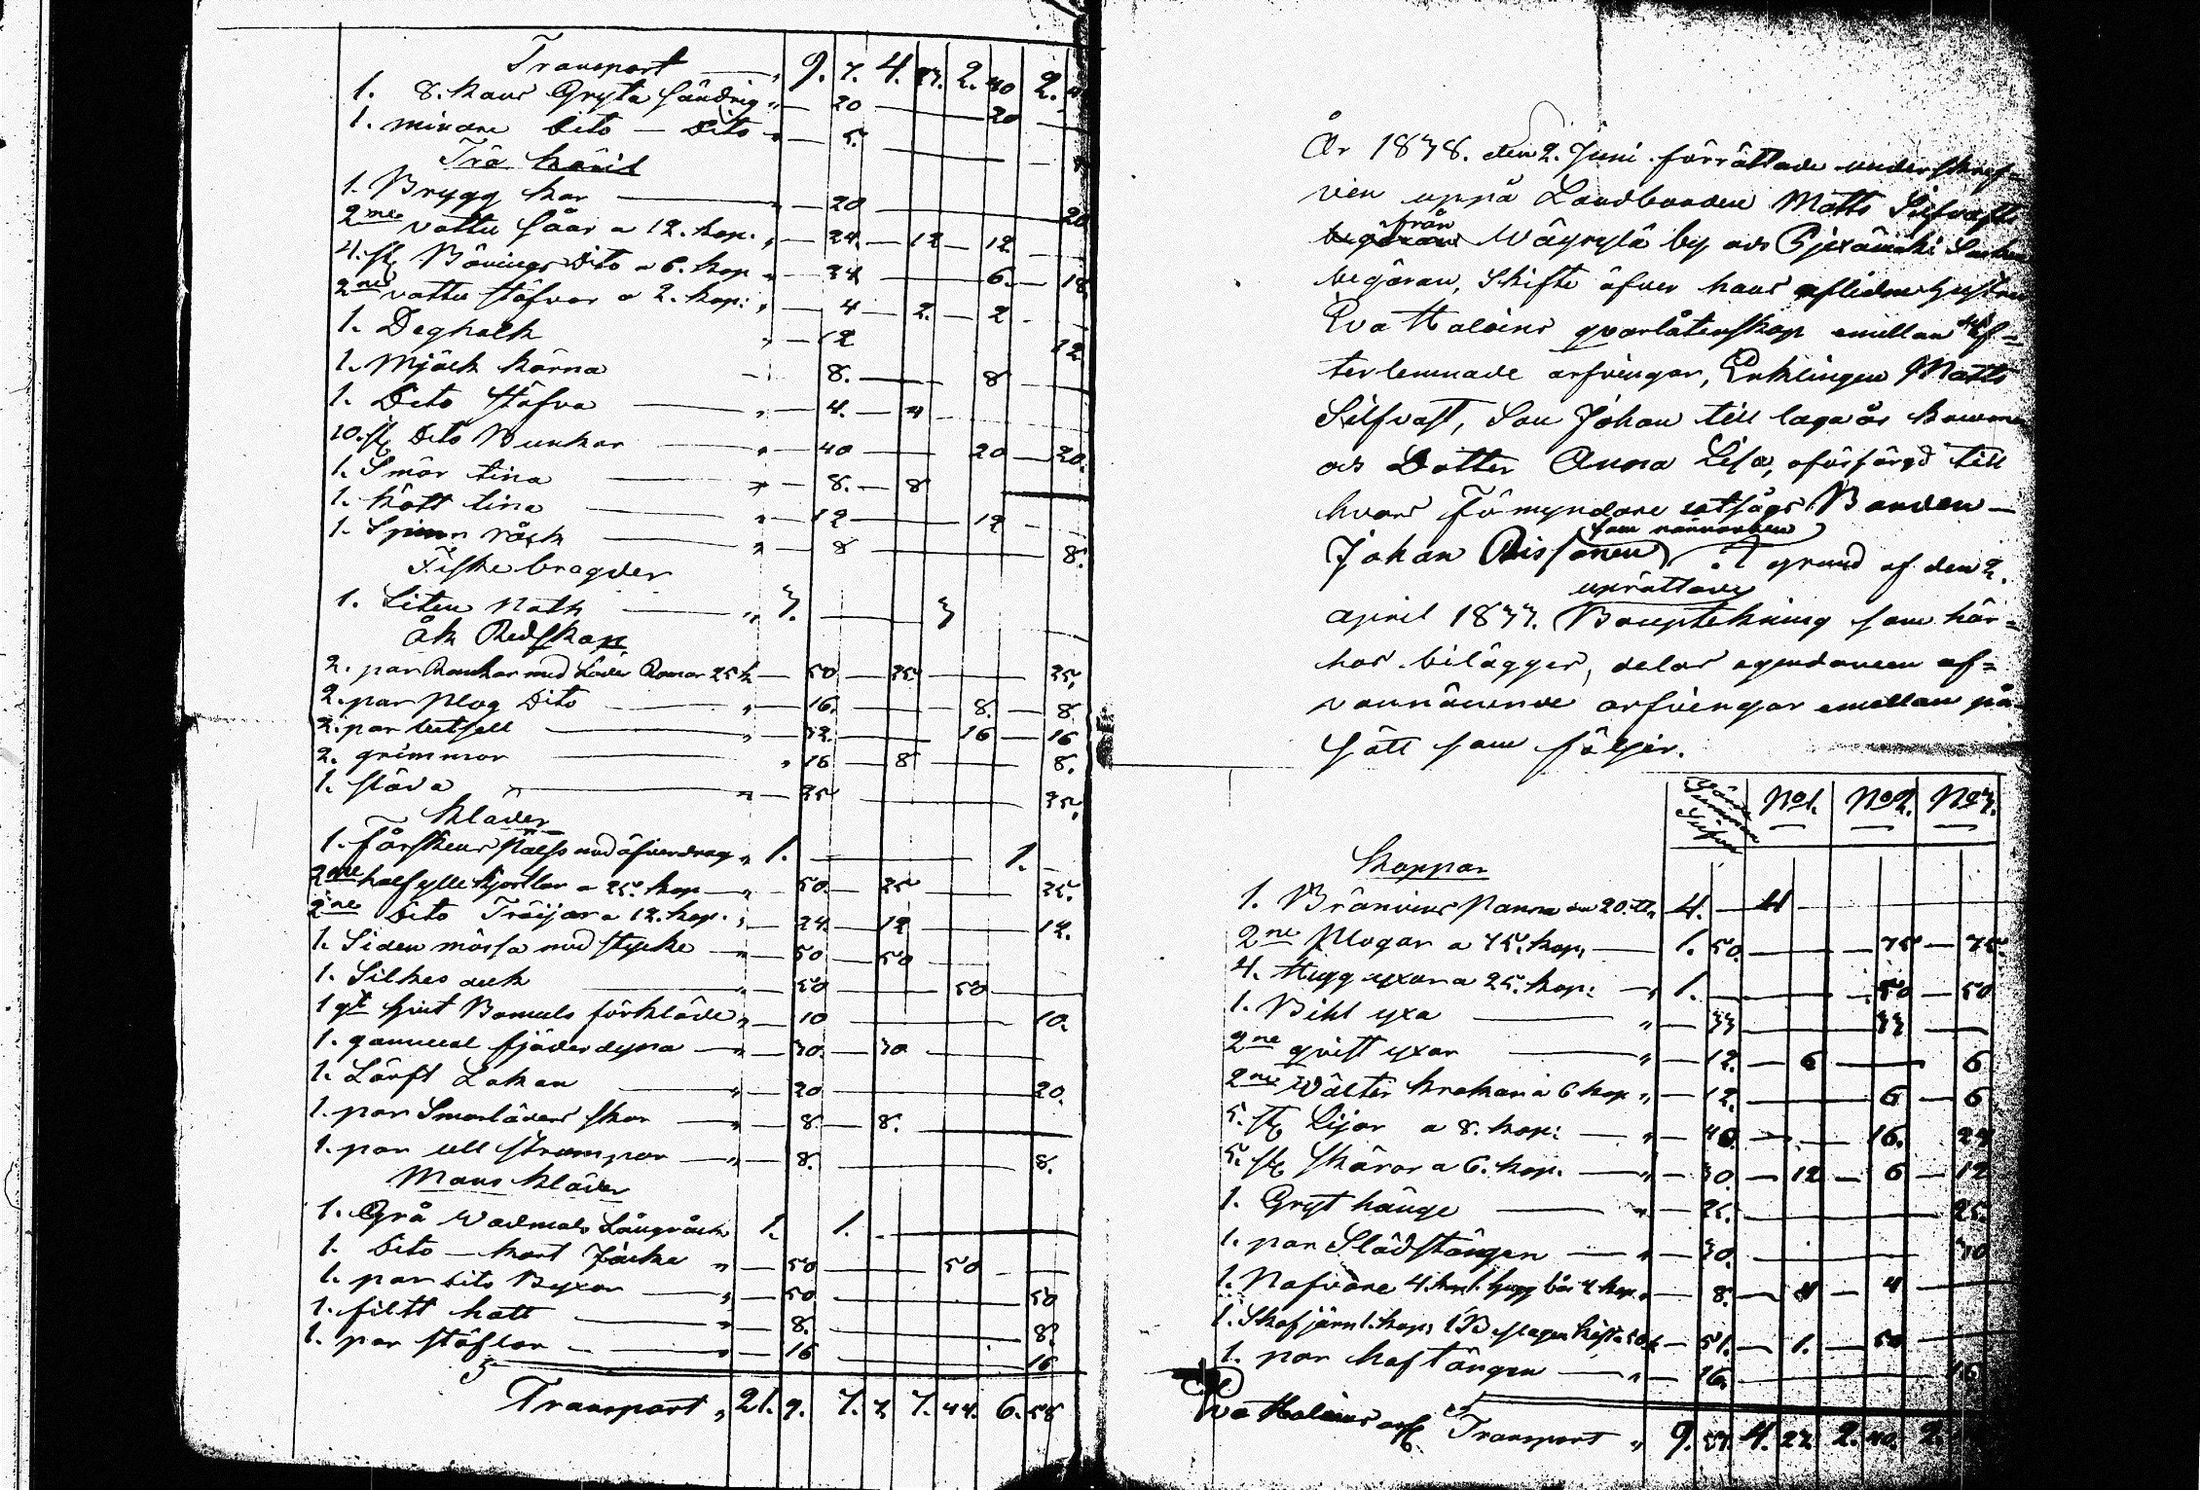 Transport „ 9. 7. 4. 23. 2. 40 2.
1. 8. kans Gryta söndrig „ — 20 — 20
1. mindre Dito — Dito „ — 5.
Trä käril
1. Brygg kar — 20 — 20
2ne vattu såar a 12. kop. „ — 24. — 12 — 12
4. st. Dito a 6. kop „ — 24 — 6. — 18
2ne vattu stäfvor a 2. kop: „ — 4 — 2. — 2
1. Deghalk „ — 12 12
1. Mjölk kärna — 8. — 8
1. Dito stäfva „ — 4. — 4
10. st. Dito Bunkar „ — 40 — 20 — 20.
1. Smör tina „ — 8. — 8
1. Kött tina „ — 12 — 12
1. Spinn råck „ — 8 — 8.
Fiske bragder
1. Liten Noth „ 3. — 3
Åk Redskap
2. par Rankor med Läder Remar 25 k — 50 — 25 — 25.
2. par Plog Dito „ — 16. — 8. — 8
2. par betsell „ — 32. — 16 — 16
2. grimmor „ 16 — 8 — 8.
1. släda „ — 25 — 25.
Kläder
1. Fårskens Päls med öfverdrag „ 1. — 1.
2ne halfylle kjortlar a 25. kop „ — 50. — 25 — 25.
2ne Dito Tröijor a 12. kop. „ — 24. — 12 — 12.
1. Siden mössa med stycke „ — 50 — 50
1. Silkes duk „ — 50 — 50
1 gt hvit Bomuls förkläde „ — 10 — 10.
1. gammal fjäder dyna „ — 30. — 30
1. Lärft Lakan „ — 20 — 20.
1. par Smorläders skor „ — 8 — 8.
1. par ull strumpor „ — 8. — 8.
Mans kläder
1. Grå Wadmals Långråck 1. 1.
1. Dito — kort Jacka „ — 50 — 50
1. par dito Byxor „ — 50 — 50
1. filtt hatt „ — 8. — 8.
1. par stöflor „ — 16 — 16
Transport „ 21. 9. 7. 7. 7. 44. 6. 58
År 1838. den 2. Juni förrättade underskref=
ven uppå Landbonden Matts Silfvasts
från
Wägrylä by och
begäran, Skifte öfver hans aflidne hustru
Eva Haloins qvarlåtenskap emellan ef=
terlemnade arfvingar, Enklingen Matts
Silfvast, Son Johan till laga år kommen
och Dotter Anna Lisa, oförsörgd till
hvars Förmyndare Bonden —
som närvarken
Johan Rissanen. I grund af den 2.
uprättade
april 1833. Bouptekning som här=
hos bilägges, delas egendomen of=
vannämnde arfvingar emellan på
sätt som följer.
Summan Silfver No1. No2. No3.
Koppar
1. Bränvins Panna om 20. „ 4. — 4
2ne Plogar a 75. kop, — 1. 50. — 75 — 75.
4. Hugg yxor a 25. kop: — „ 1. — 50 — 50
1. Bihl yxa — „ — 33 — 33
2ne qvist yxor — „ — 12. — 6 — 6
2ne Wälter krokar a 6 kop „ — 12. — 6 — 6
5. st. Lijar a 8. kop: — „ — 40. — 16. 24
5. st. Skäror a 6. kop. — „ — 30. — 12 — 6 — 12
1. Gryt hänge — „ — 25. — 25.
1. par Slädstången — „ — 30. — 30
1. Nafvare 4. kop. 1. hugg bår 4 kop. „ — 8. — 4 — 4
1. Skafjärn 1. kop, 1. Beslagen kista 50 k — 51. — 1. — 50
1. par hoftången — „ — 16. — 16
Eva Haloins Transport „ 9. 57. 4. 23. 2. 40. 2.